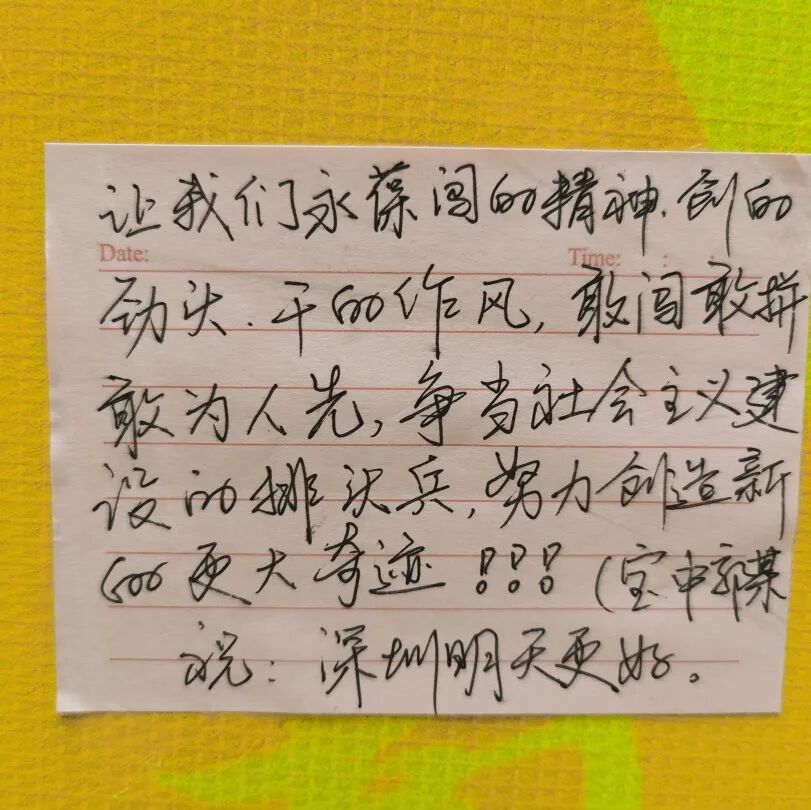 让我们永葆闯的精神.创的
Date: Time: : :
劲头.干的作风,敢闯敢拼
敢为人先,争当社会主义建
设的排头兵,努力创造新
的更大奇迹!!!(宝中郭某
祝:深圳明天更好。